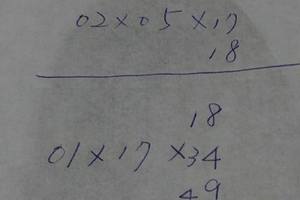 02×05×17
18
18
01×17×34
49